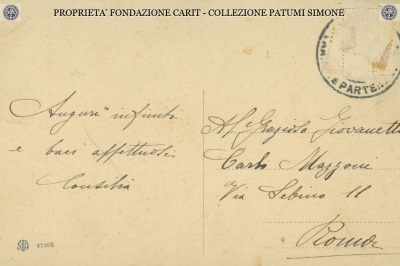 PROPRIETA' FONDAZIONE CARIT - COLLEZIONE PATUMI SIMONE
E PARTEN
Auguri infiniti
e baci affettuosi
Consilia
Giovanetti
Carlo Mazzoni
Via Sebino 11
Roma
47268